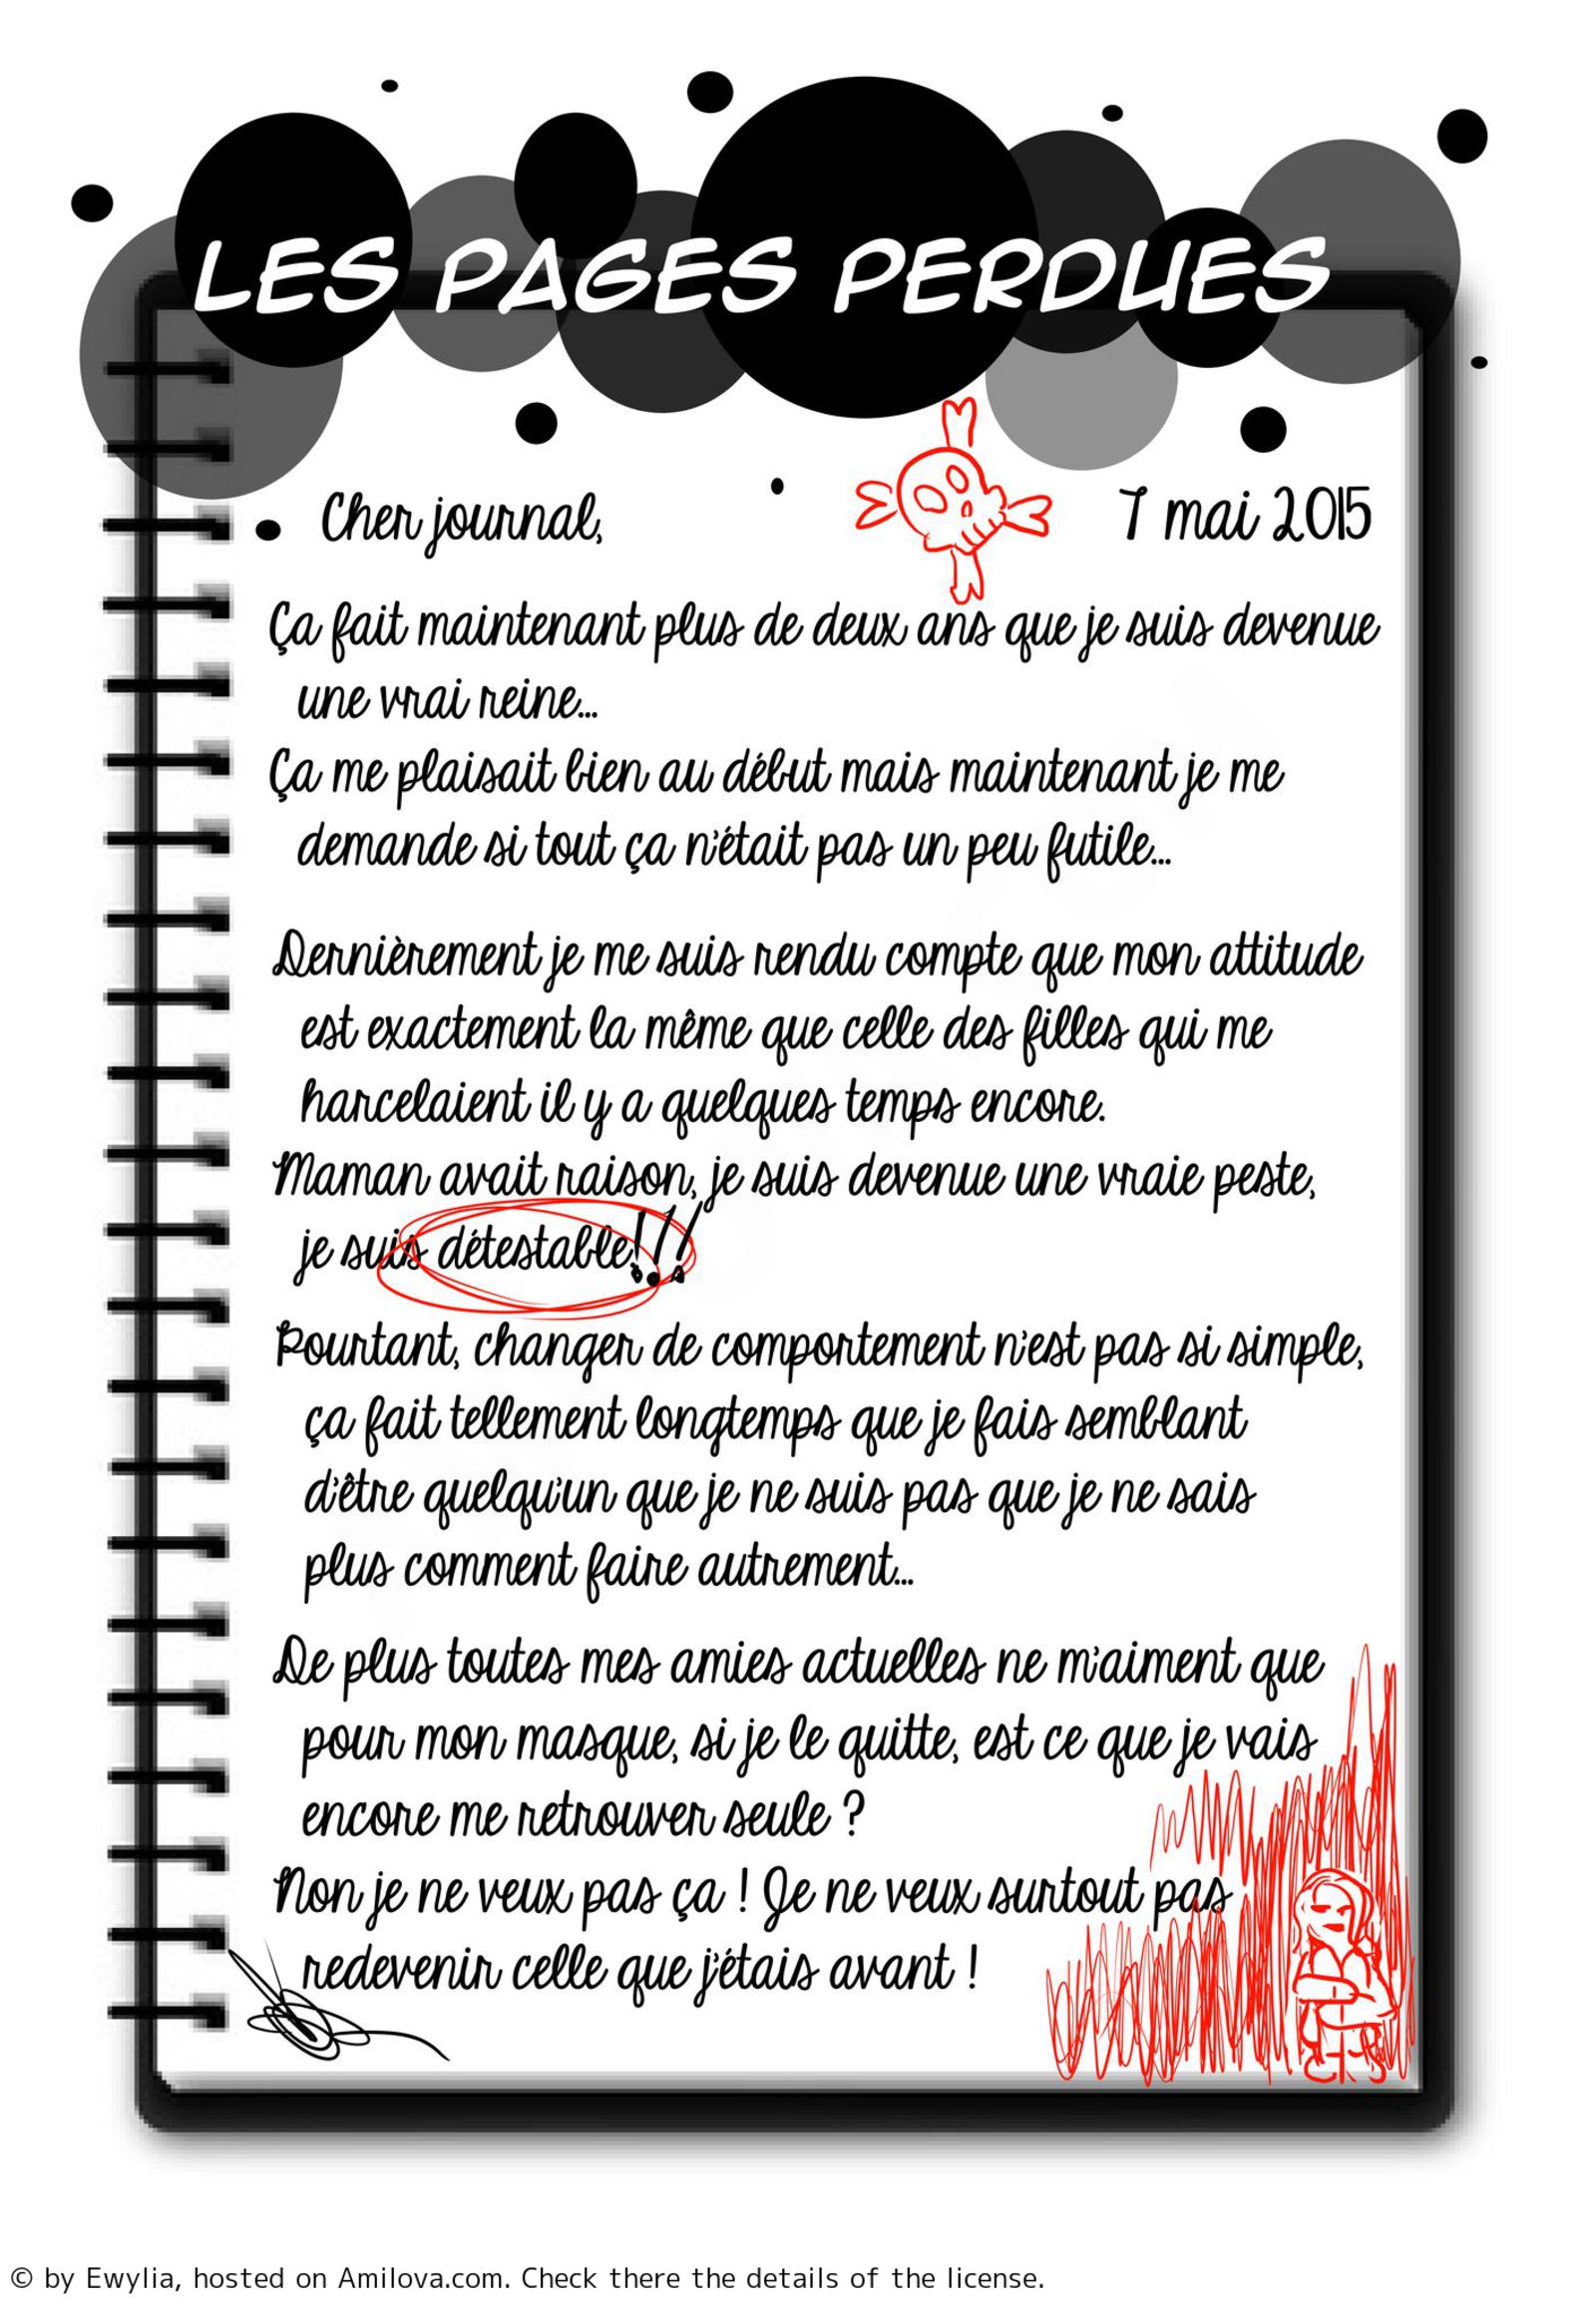 LES PAGES PERDUES
Cher journal,
7 mai 2015
Ça fait maintenant plus de deux ans que je suis devenue
une vrai reine...
Ça me plaisait bien au début mais maintenant je me
demande si tout ça n'était pas un peu futile...
Dernièrement je me suis rendu compte que mon attitude
est exactement la même que celle des filles qui me
harcelaient il y a quelques temps encore.
Maman avait raison, je suis devenue une vraie peste,
je suis détestable!!!
Pourtant, changer de comportement n'est pas si simple,
ça fait tellement longtemps que je fais semblant
d'être quelqu'un que je ne suis pas que je ne sais
plus comment faire autrement...
De plus toutes mes amies actuelles ne m'aiment que
pour mon masque, si je le quitte, est ce que je vais
encore me retrouver seule ?
Non je ne veux pas ça ! Je ne veux surtout pas
redevenir celle que j'étais avant !
© by Ewylia, hosted on Amilova.com. Check there the details of the license.